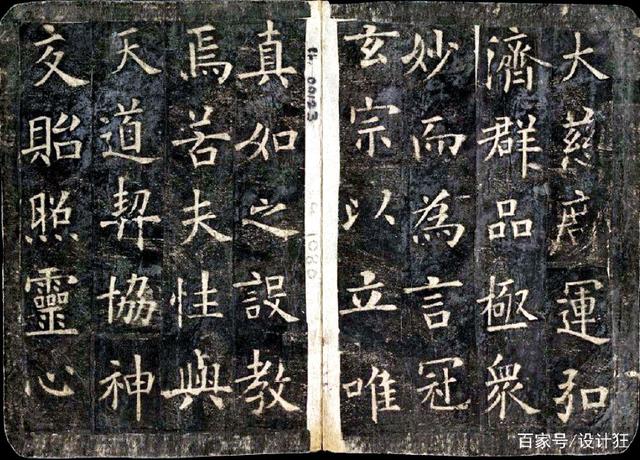 大慈運弘
濟群品極衆
妙而為言冠
玄宗以立唯
真如之設教
焉若夫性與
天道契協神
交貽照靈心
百家号/设计狂